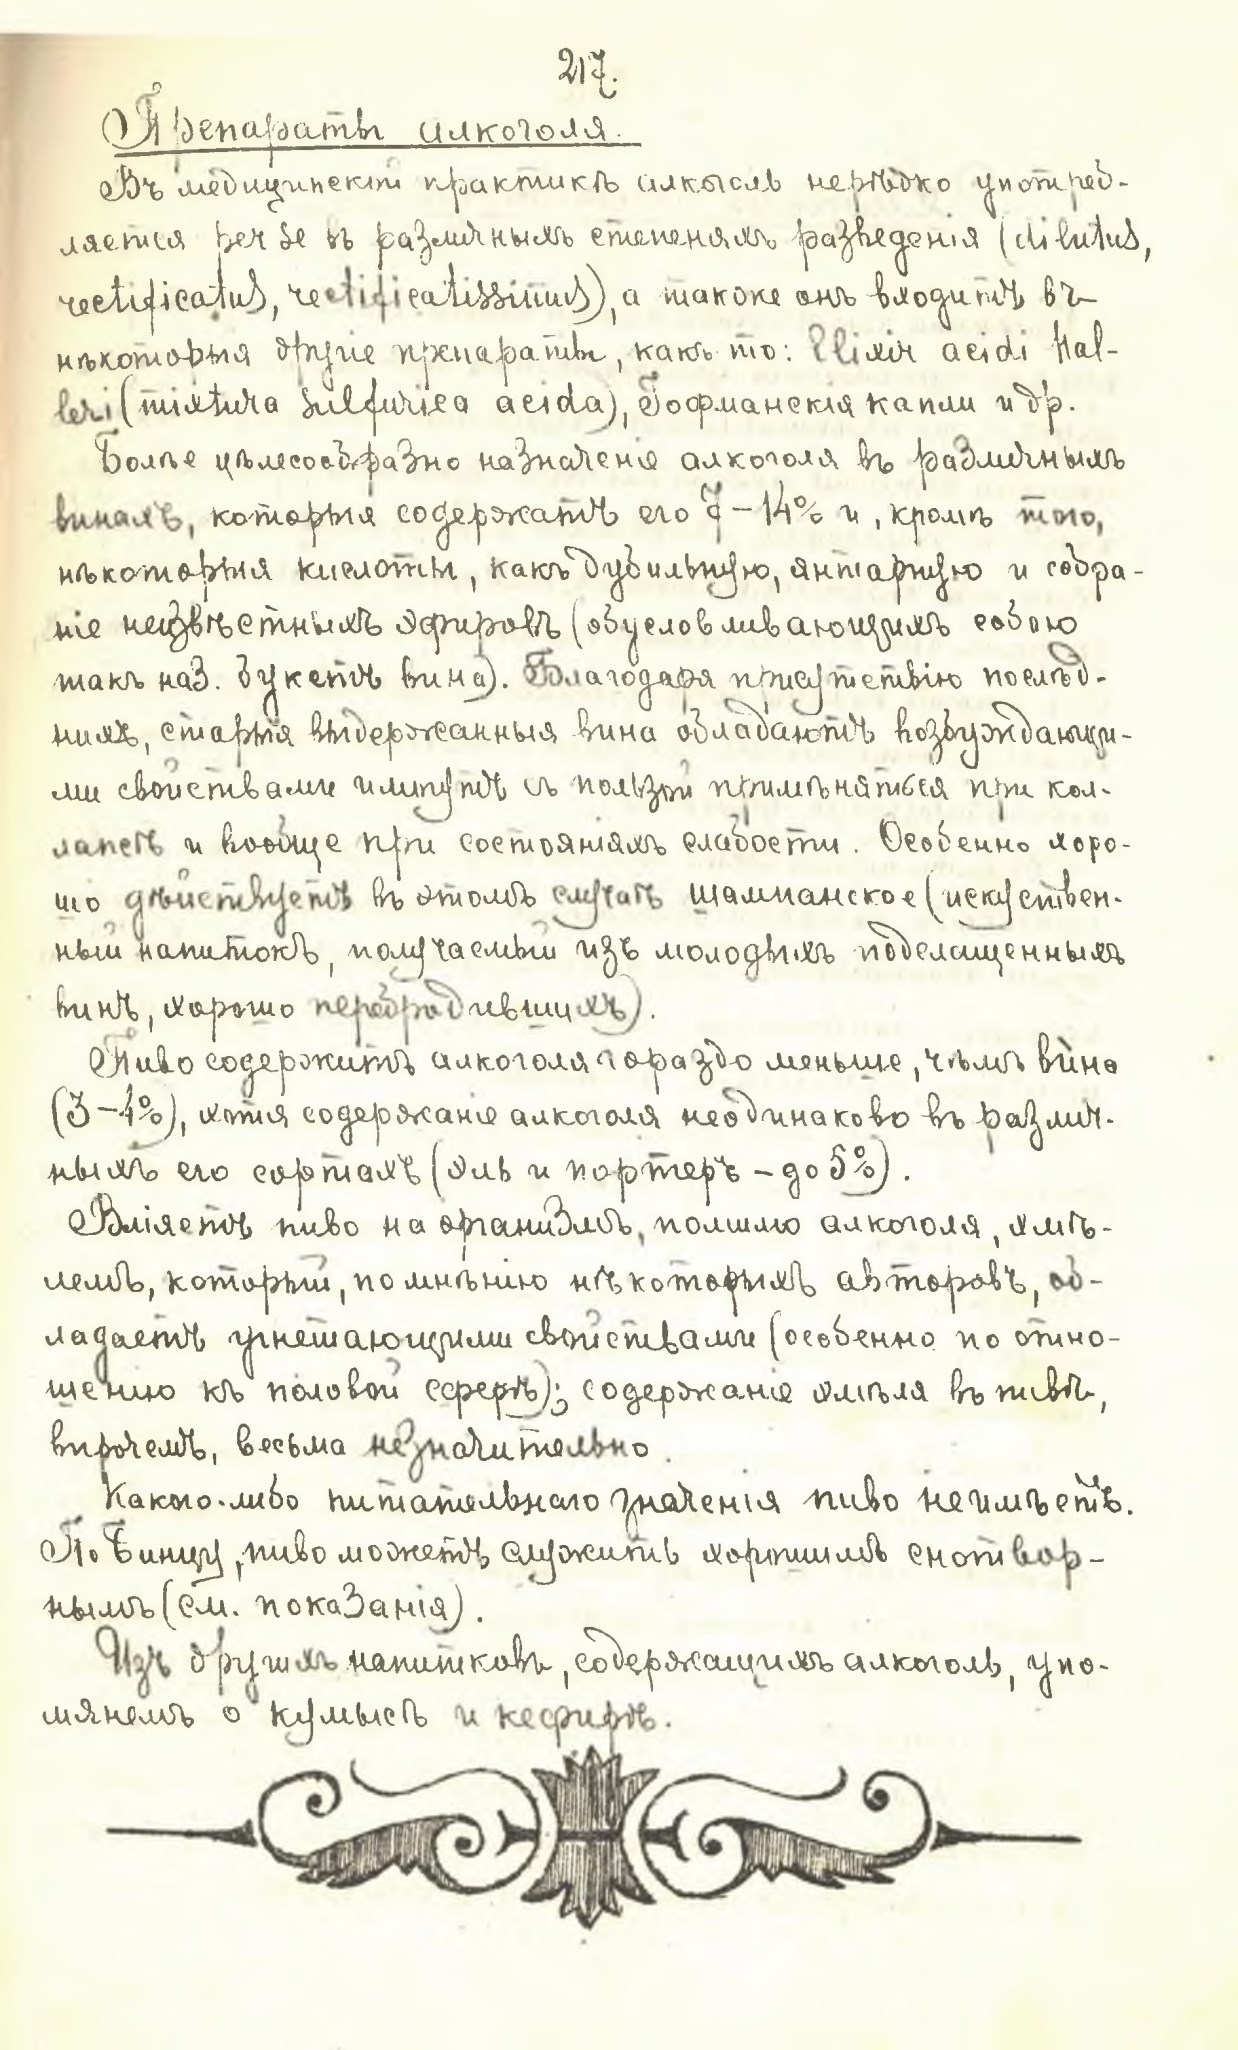 217.
Препараты алкоголя.
Въ медицинской практикѣ алкоголь нерѣдко употреб-
ляется per se въ различныхъ степеняхъ разведенія (dilutus,
rectificatus, rectificatissimus), а также онъ входитъ въ
нѣкоторыя другіе препараты, какъ то: Elixir acidi Hal-
leri (mixtura sulfurica acida), Гофманскія капли и др.
Болѣе цѣлесообразно назначеніе алкоголя въ различныхъ
винахъ, которыя содержатъ его 7–14% и, кромѣ того,
нѣкоторыя кислоты, какъ дубильную, янтарную и собра-
ніе неизвѣстныхъ эфировъ (обусловливающихъ собою
такъ наз. букетъ вина). Благодаря присутствію послѣд-
нихъ, старыя выдержанныя вина обладаютъ возбуждающи-
ми свойствами и могутъ съ пользой примѣняться при кол-
лапсѣ и вообще при состояніяхъ слабости. Особенно хоро-
шо дѣйствуетъ въ этомъ случаѣ шампанское (искуствен-
ный напитокъ, получаемый изъ молодыхъ подслащенныхъ
винъ, хорошо перебродившихъ).
Пиво содержитъ алкоголя гораздо меньше, чѣмъ вина
(3–4%), хотя содержаніе алкоголя неодинаково въ различ-
ныхъ его сортахъ (эль и портеръ – до 5%).
Вліяетъ пиво на организмъ, помимо алкоголя, хмѣ-
лемъ, который, по мнѣнію нѣкоторыхъ авторовъ, об-
ладаетъ угнетающими свойствами (особенно по отно-
шенію къ половой сферѣ); содержаніе хмѣля въ пивѣ,
впрочемъ, весьма незначительно.
Какого-либо питательнаго значенія пиво не имѣетъ.
По Бинцу, пиво можетъ служить хорошимъ снотвор-
нымъ (см. показанія).
Изъ другихъ напитковъ, содержащихъ алкоголь, упо-
мянемъ о кумысѣ и кефирѣ.